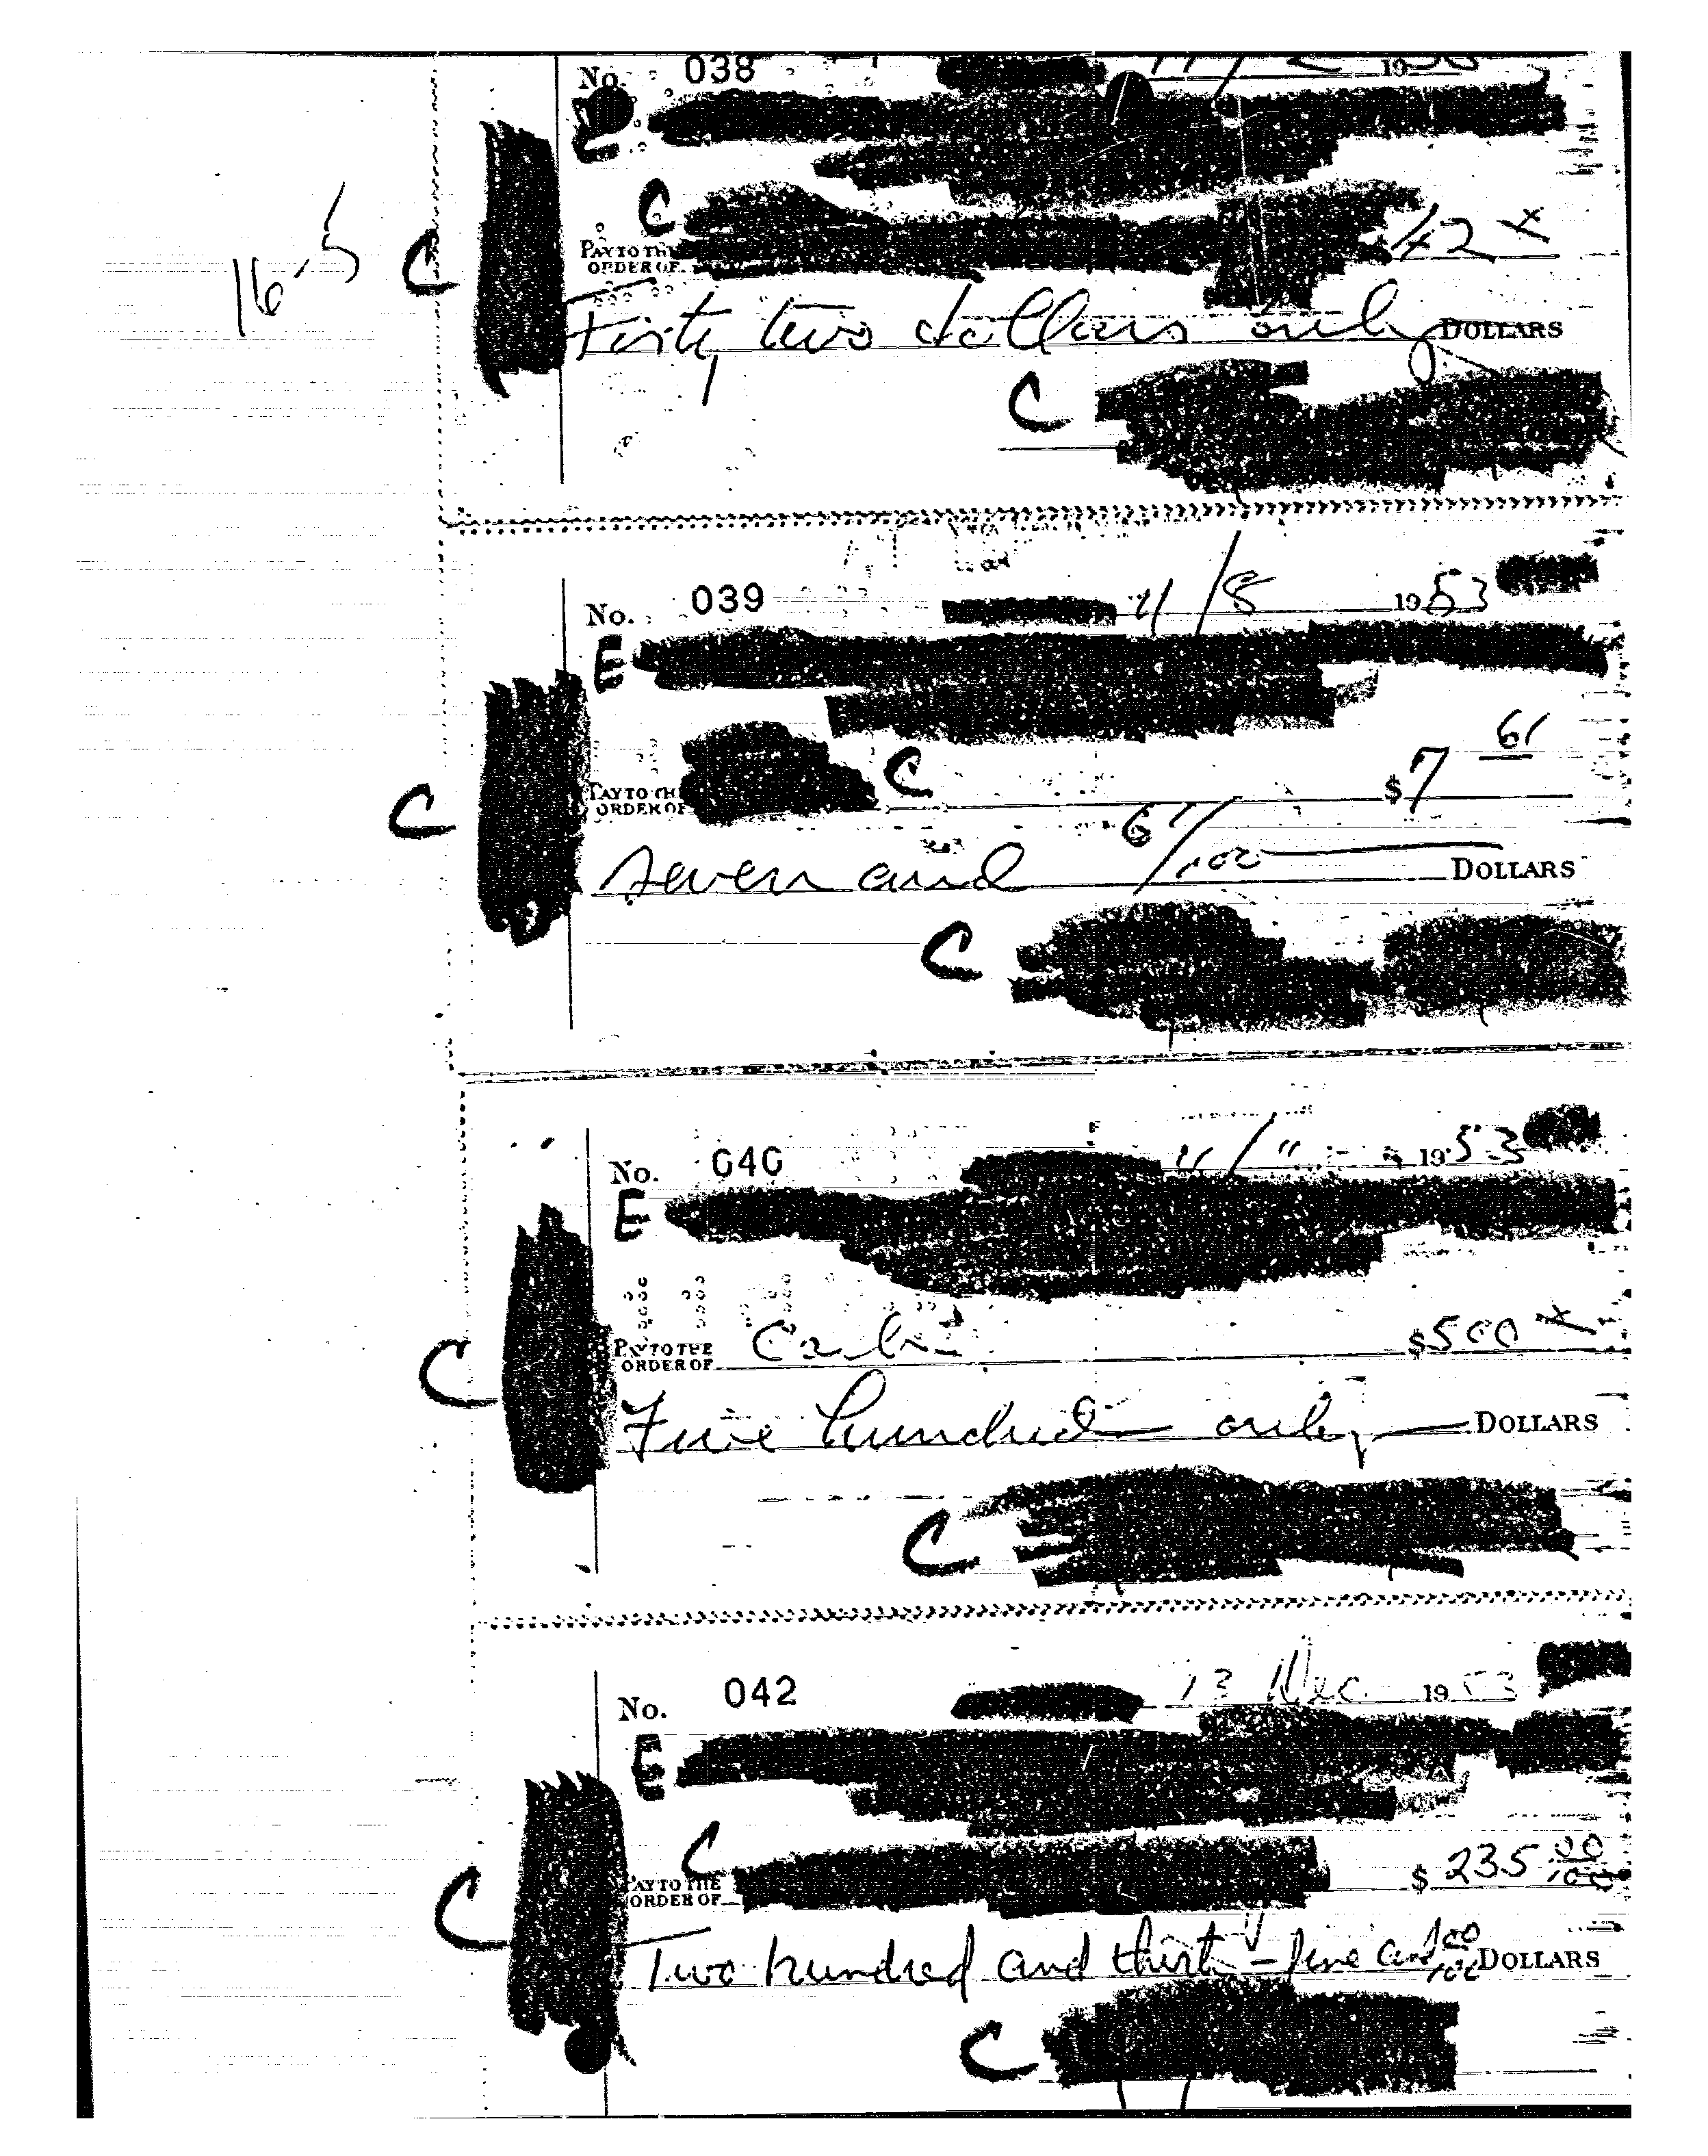 No. 038 11/ 19
C
16-5 C
PAY TO THE
ORDER OF $42 x
Forty two dollars only DOLLARS
C
No. 039 11/8 1953
E
C
PAY TO THE
ORDER OF $7 61
C
seven and 61/100 DOLLARS
C
No. 040 11/11 1953
E
PAY TO THE
ORDER OF $500 x
C
Five hundred only DOLLARS
C
No. 042 13 Dec 1953
E
C
PAY TO THE
ORDER OF $235 00/100
C
Two hundred and thirty-five and 00/100 DOLLARS
C